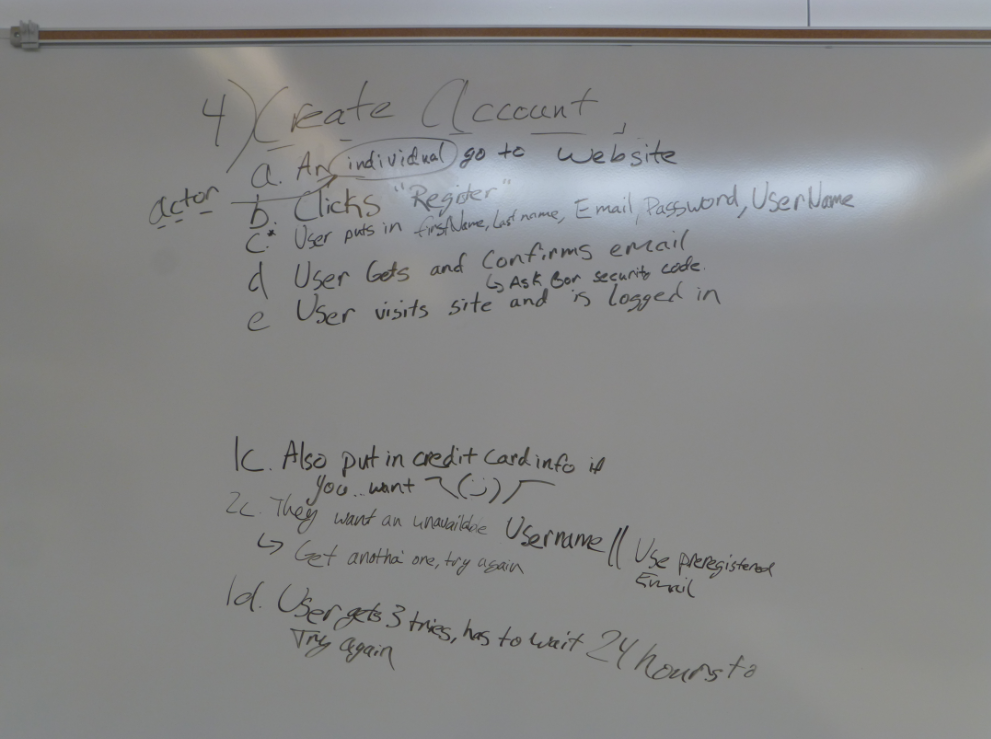 4) Create Account
a. An individual go to website
actor
b. Clicks "Register"
c.* User puts in firstName, Last name, Email, Password, UserName
d User Gets and Confirms email
↳ Ask for security code.
e User visits site and is logged in
1c. Also put in credit card info if
you want ¯\(ツ)/¯
2c. They want an unavailable Username || Use preregistered
Email
↳ Get another one, try again
1d. User gets 3 tries, has to wait 24 hours to
Try again